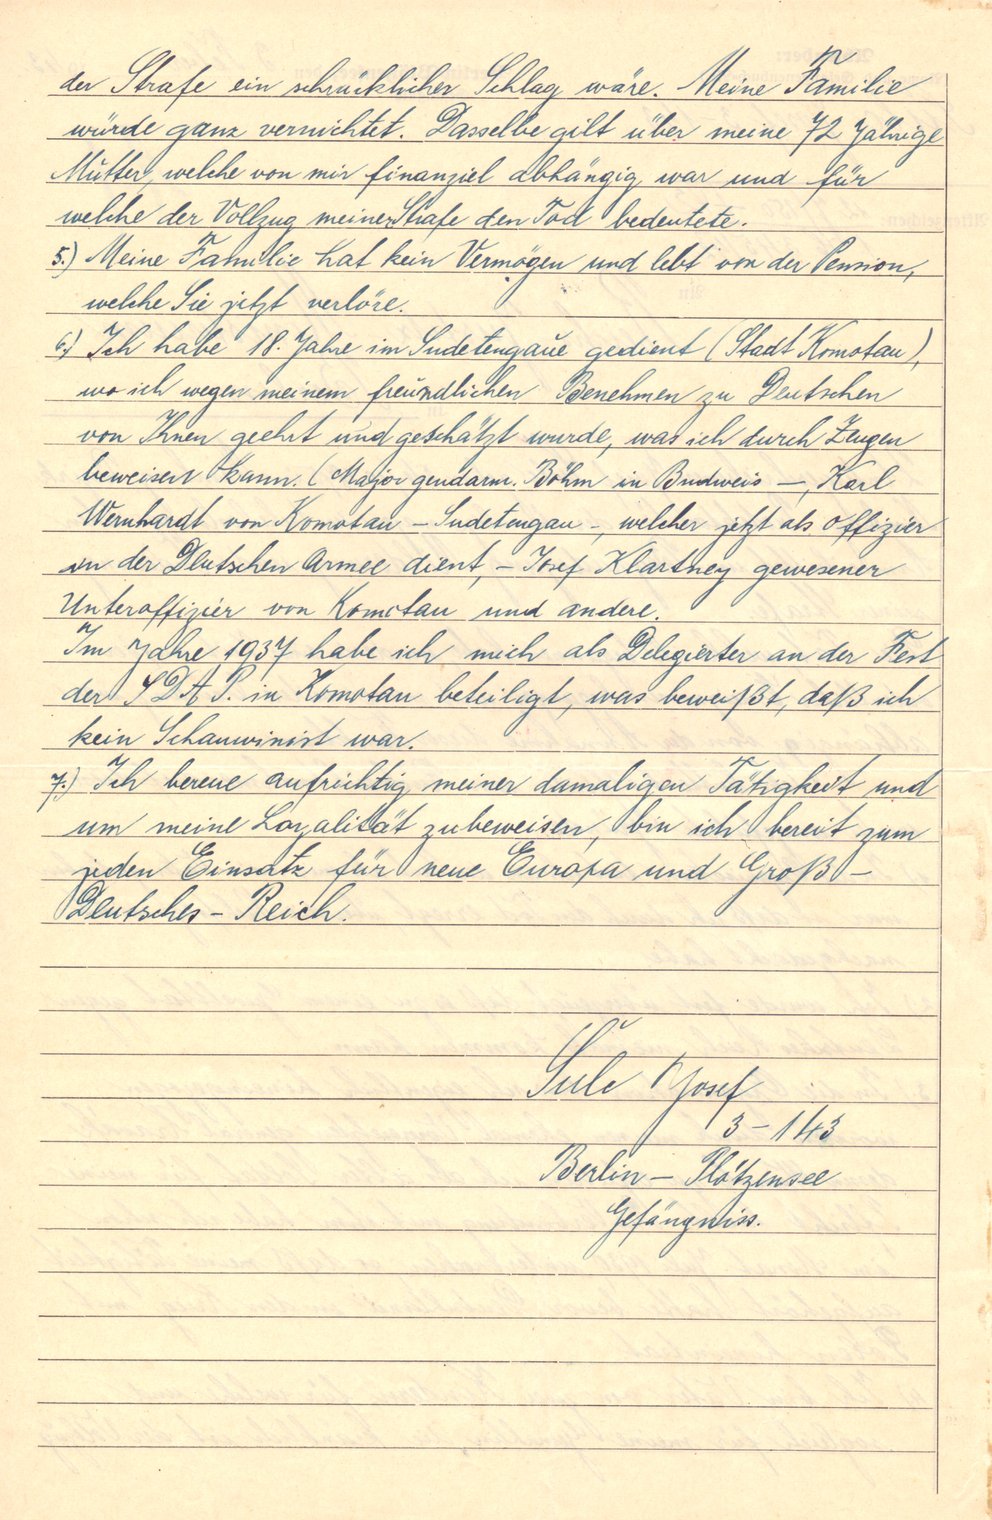 der Strafe ein schrücklicher Schlag wäre. Meine Familie
würde ganz vernichtet. Dasselbe gilt über meine 72 jährige
Mutter, welche von mir finanziel abhängig war und für
welche der Vollzug meiner Strafe den Tod bedeutete.
5.) Meine Familie hat kein Vermögen und lebt von der Pension,
welche Sie jetzt verlöre.
6.) Ich habe 18. Jahre im Sudetengaue gedient (Stadt Komotau),
wo ich wegen meinem freundlichen Benehmen zu Deutschen
von Ihnen geehrt und geschätzt wurde, was ich durch Zeugen
beweisen kann. (Major gendarm. Böhm in Budweis –, Karl
Wernhardt von Komotau – Sudetengau –, welcher jetzt als Offizier
in der Deutschen Armee dient, – Josef Klartney gewesener
Unteroffizier von Komotau und andere.
Im Jahre 1937 habe ich mich als Delegierter an der Fest
der SDAP. in Komotau beteiligt, was beweißt, daß ich
kein Schauwinist war.
7.) Ich bereue aufrichtig meiner damaligen Tätigkeit und
um meine Loyalität zubeweisen, bin ich bereit zum
jeden Einsatz für neue Europa und Groß –
Deutsches – Reich.
Šulc Josef
3 – 143
Berlin – Plötzensee
Gefängniss.